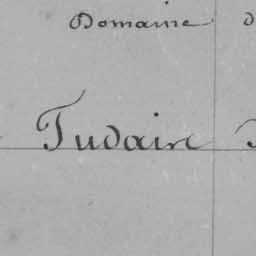 Domaine d
Tudain